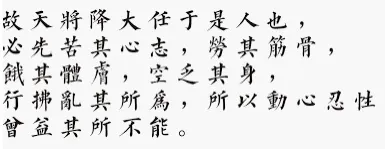 故天將降大任于是人也，
必先苦其心志，勞其筋骨，
餓其體膚，空乏其身，
行拂亂其所為，所以動心忍性
曾益其所不能。